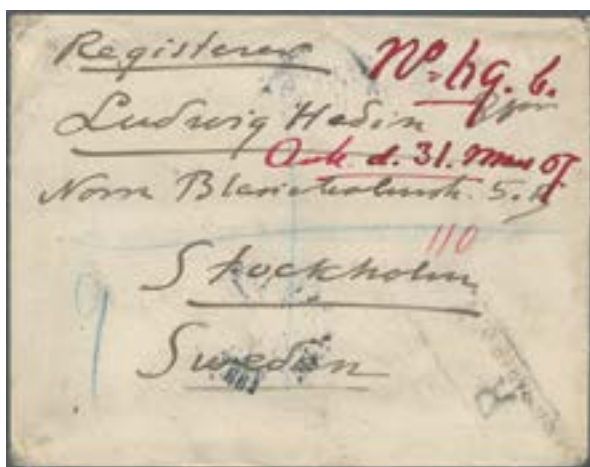 Registered
Ludwig Hedin
d. 31. Mars 07
Norra Blasieholmsh. 5. B
110
Stockholm
Sweden